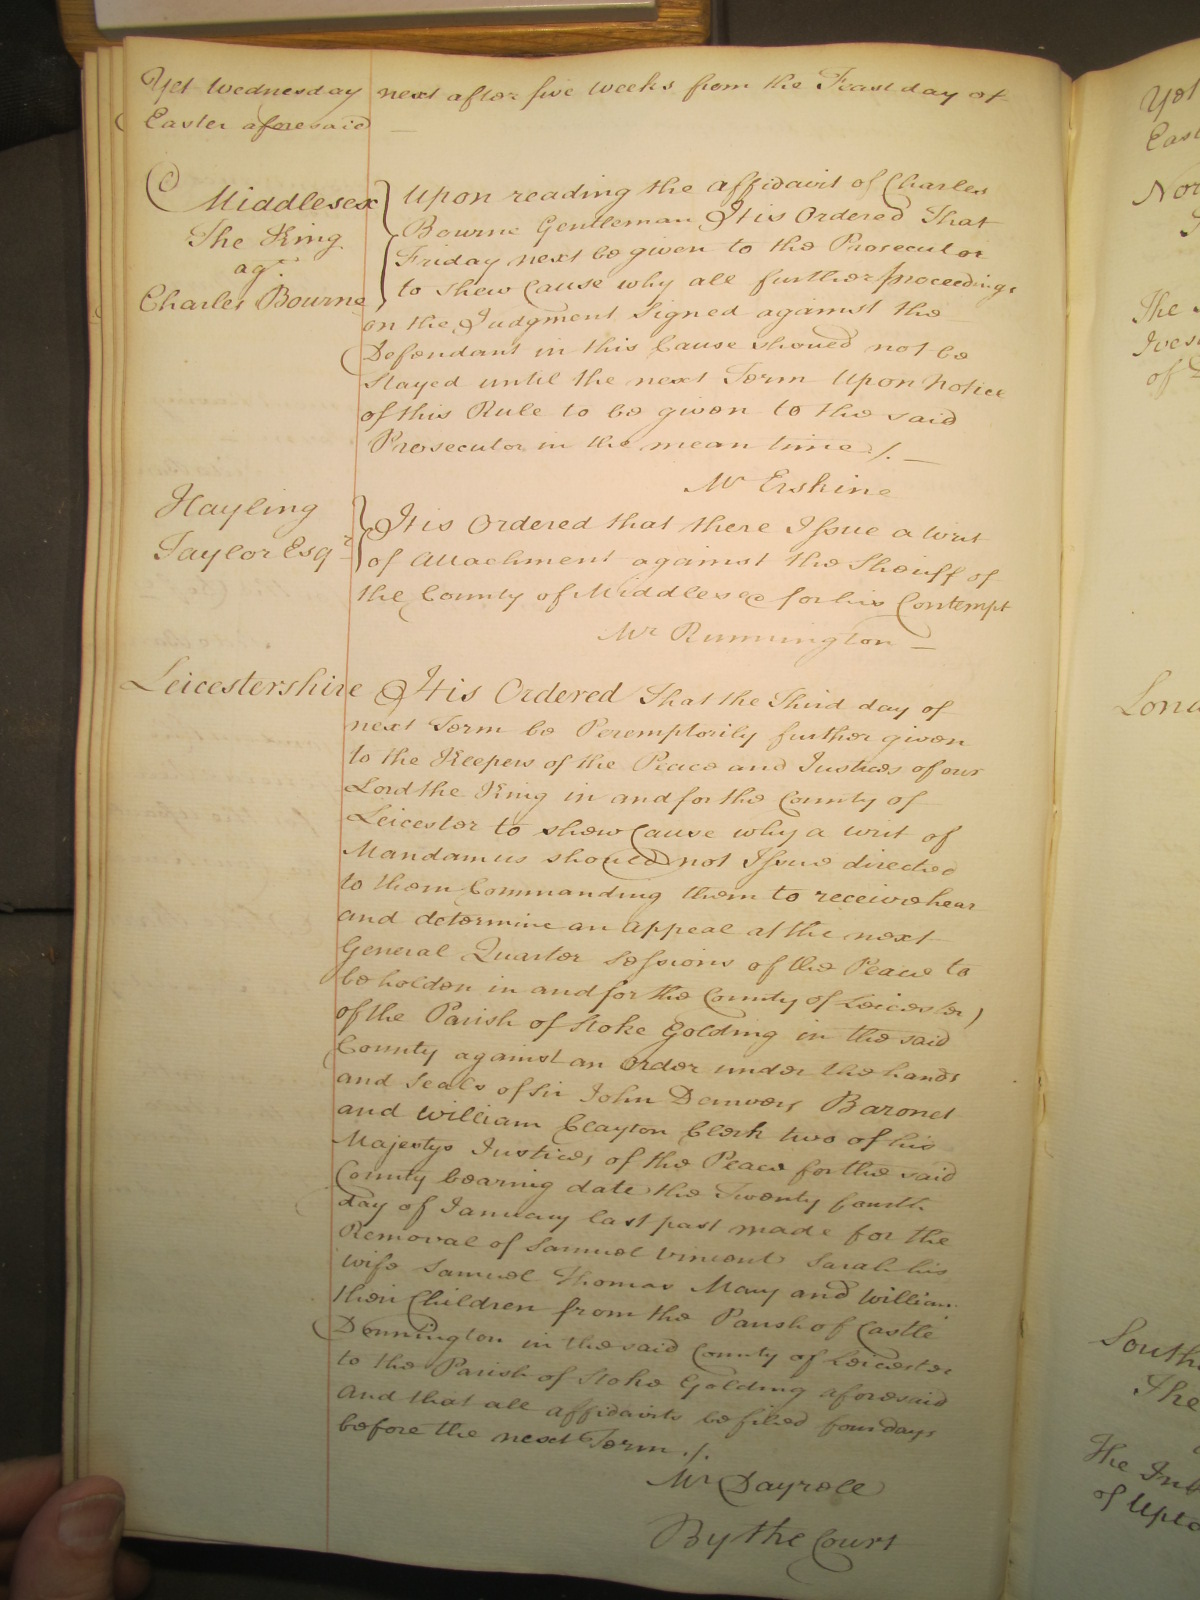 Yet Wednesday next after five weeks from the Feast day of
Easter aforesaid —
Middlesex Upon reading the affidavit of Charles
The King Bourne Gentleman It is Ordered That
agt. Friday next be given to the Prosecutor
Charles Bourne to shew Cause why all further proceedings
on the Judgment Signed against the
Defendant in this Cause should not be
Stayed until the next Term Upon Notice
of this Rule to be given to the said
Prosecutor in the mean time /. —
Mr Erskine
Hayling It is Ordered that there Issue a Writ
Taylor Esqr of Attachment against the Sheriff of
the County of Middlesex for his Contempt
Mr Runnington —
Leicestershire It is Ordered That the Third day of
next Term be Peremptorily further given
to the Keepers of the Peace and Justices of our
Lord the King in and for the County of
Leicester to shew Cause why a writ of
Mandamus should not Issue directed
to them Commanding them to receive hear
and determine an Appeal at the next
General Quarter Sessions of the Peace to
be holden in and for the County of Leicester)
of the Parish of Stoke Golding in the said
County against an Order under the hands
and Seals of Sir John Danvers Baronet
and William Clayton Clerk two of his
Majestys Justices of the Peace for the said
County bearing date the Twenty fourth
day of January last past made for the
Removal of Samuel Vincent Sarah his
wife Samuel Thomas Mary and William
their Children from the Parish of Castle
Donnington in the said County of Leicester
to the Parish of Stoke Golding aforesaid
And that all affidavits be filed four days
before the next Term ./.
Mr Dayrell
By the Court